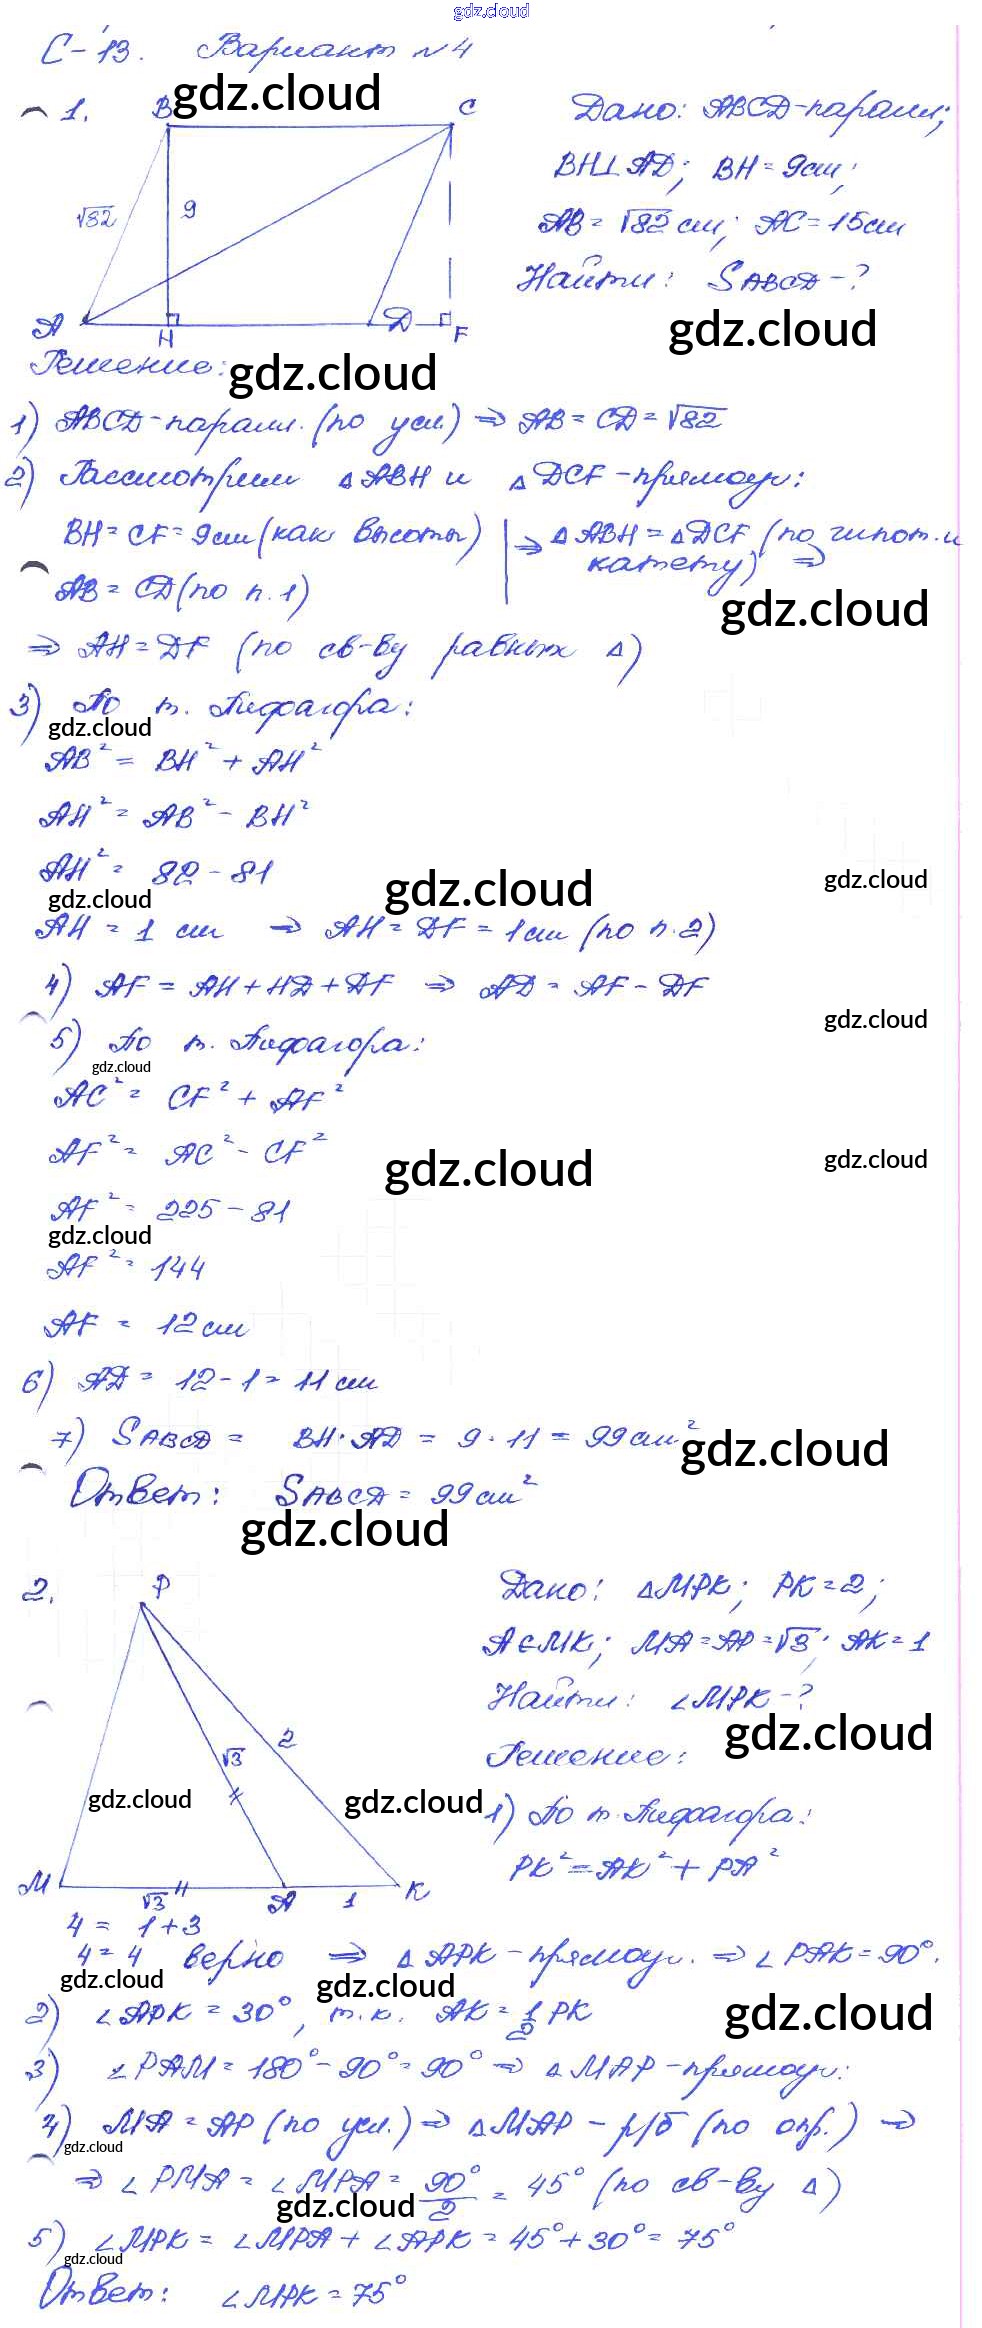 gdz.cloud
С-13. Вариант №4
gdz.cloud
1.
B
C
√82
9
A
H
D
F
Дано: ABCD-парал.;
BH⊥AD; BH = 9см;
AB = √82 см; AC = 15см
Найти: S ABCD - ?
gdz.cloud
Решение:
gdz.cloud
1) ABCD-парал. (по усл.) ⇒ AB = CD = √82
2) Рассмотрим △ABH и △DCF - прямоуг.:
BH = CF = 9см (как высоты) | ⇒ △ABH = △DCF (по гипот. и
AB = CD (по п.1) | катету) ⇒
gdz.cloud
⇒ AH = DF (по св-ву равных △)
3) По т. Пифагора:
gdz.cloud
AB² = BH² + AH²
AH² = AB² - BH²
AH² = 82 - 81
gdz.cloud
gdz.cloud
gdz.cloud
AH = 1 см ⇒ AH = DF = 1см (по п.2)
4) AF = AH + HD + DF ⇒ AD = AF - DF
gdz.cloud
5) По т. Пифагора:
gdz.cloud
AC² = CF² + AF²
AF² = AC² - CF²
gdz.cloud
gdz.cloud
AF² = 225 - 81
gdz.cloud
AF² = 144
AF = 12см
6) AD = 12 - 1 = 11см
7) S ABCD = BH · AD = 9 · 11 = 99см²
gdz.cloud
Ответ: S ABCD = 99см²
gdz.cloud
2.
P
√3
2
M
√3
A
1
K
Дано: △MPK; PK = 2;
A∈MK; MA = AP = √3; AK = 1
Найти: ∠MPK - ?
gdz.cloud
Решение:
gdz.cloud
gdz.cloud
1) По т. Пифагора:
PK² = AK² + PA²
4 = 1 + 3
4 = 4 верно ⇒ △APK - прямоуг. ⇒ ∠PAK = 90°.
gdz.cloud
gdz.cloud
gdz.cloud
2) ∠APK = 30°, т.к. AK = 1/2 PK
3) ∠PAM = 180° - 90° = 90° ⇒ △MAP - прямоуг.:
4) MA = AP (по усл.) ⇒ △MAP - р/б (по опр.) ⇒
gdz.cloud
⇒ ∠PMA = ∠MPA = 90°/2 = 45° (по св-ву △)
gdz.cloud
5) ∠MPK = ∠MPA + ∠APK = 45° + 30° = 75°
gdz.cloud
Ответ: ∠MPK = 75°